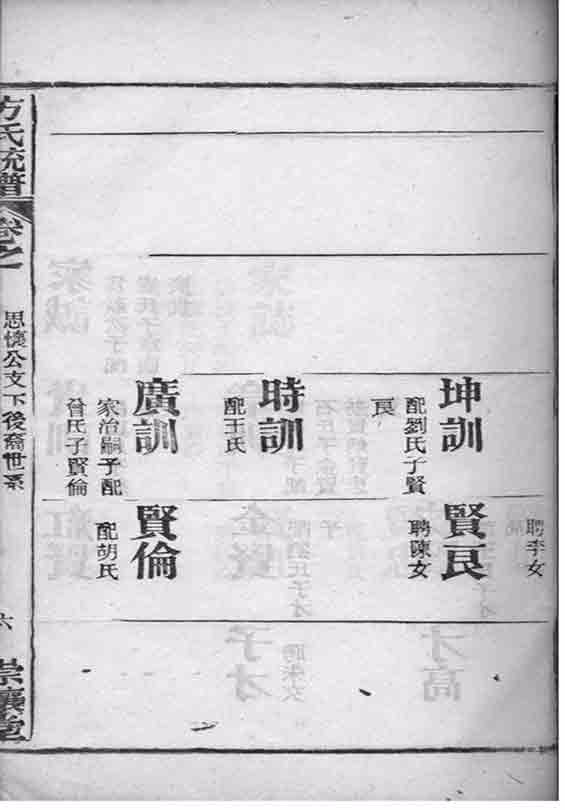 聘李女
坤訓
配劉氏子賢
良
賢良
聘陳女
時訓
配王氏
廣訓
家治嗣子配
曾氏子賢倫
賢倫
配胡氏
方氏統譜
卷之一
思懷公文下後裔世系
六